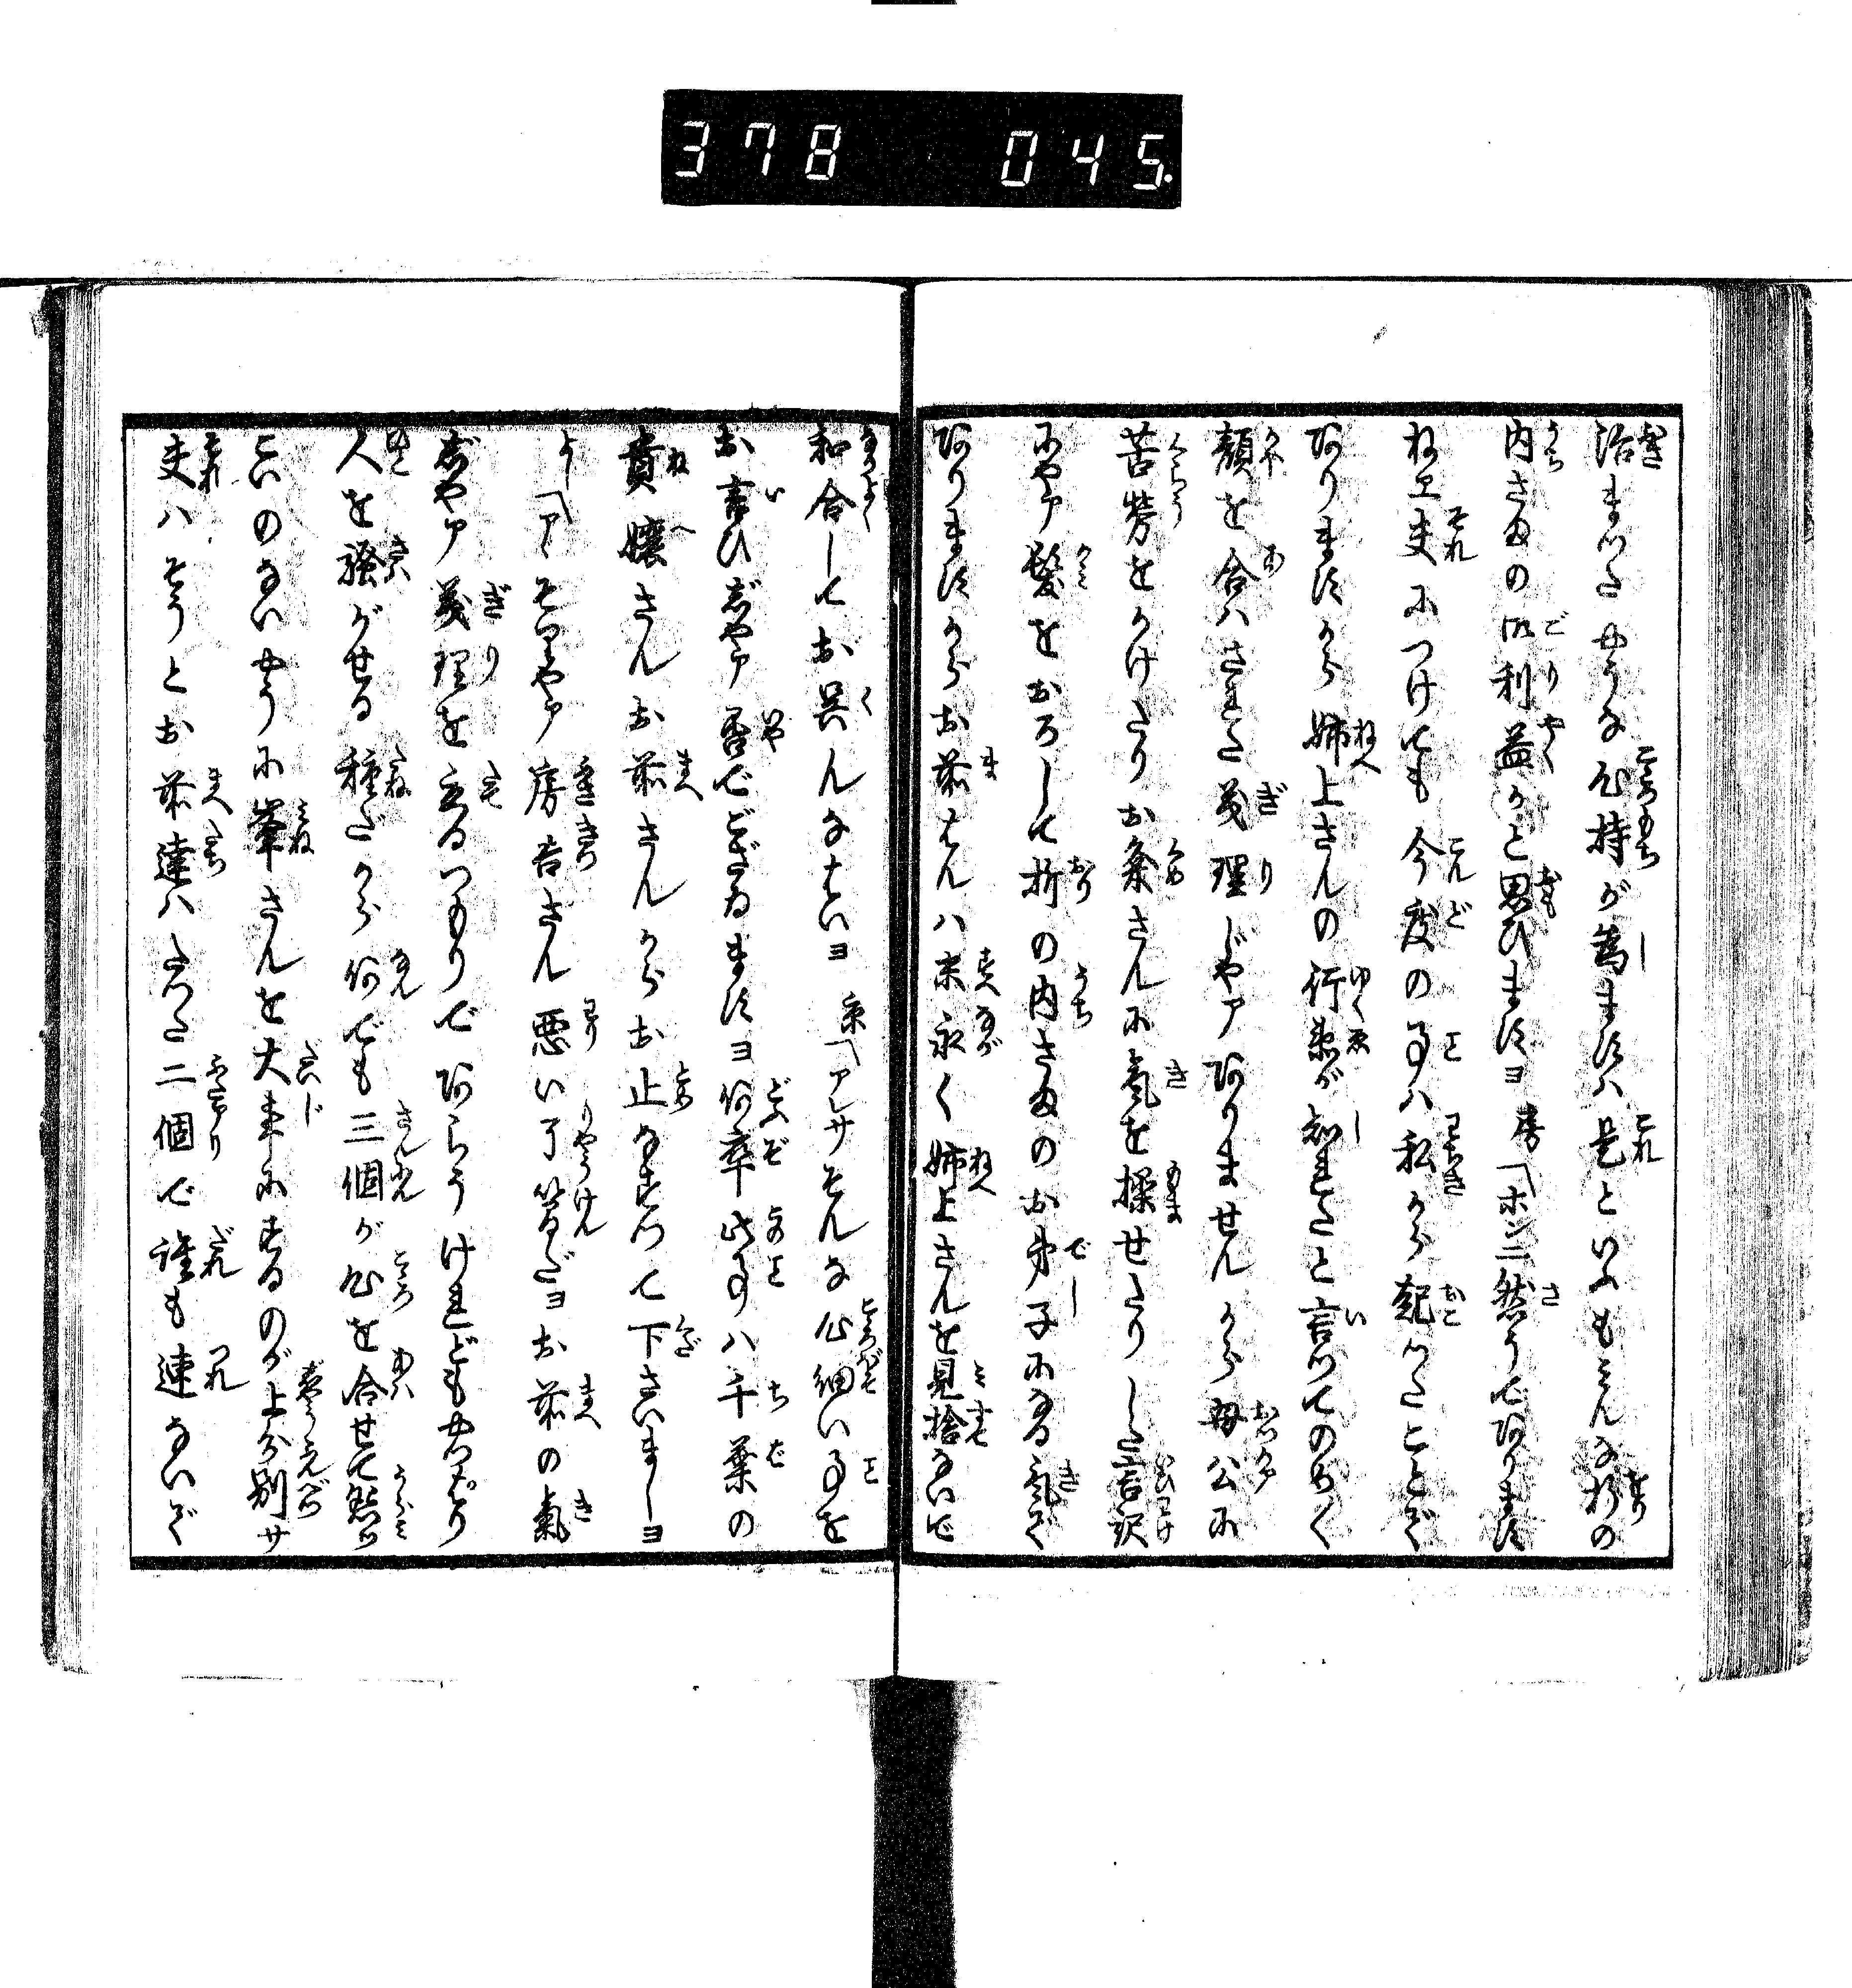 378 045.
治まつたやうな心持が為ますは是といふもみんな折の
内さまの御利益かと思ひますヨ 房「ホンニ然うであります
ねエ夫につけても今度の事ハ私から起つたことで
ありますから姉上さんの行衛が知れたと言つてのめ〳〵
顔を合ハされた義理じやアありませんから母公に
苦労をかけたりお粂さんに気を揉せたりした言訳
にやア髪をおろして折の内さまのお弟子になる気で
ありますからお前はんハ末永く姉上さんを見捨ないで
和合してお呉んなさいヨ 粂「アレサそんな心細い事を
お言ひじやア否でございますヨ何卒此事ハ千葉の
貴嬢さんお前さんからお止なすつて下さいましヨ
よ「アヽそりやア房吉さん悪い了簡だヨお前の気
じやア義理を立るつもりであらうけれどもやつぱり
人を騒がせる種だから何でも三個が心を合せて怨ツ
こいのないやうに峯さんを大事にするのが上分別サ
夫ハそうとお前達ハたつた二個で誰も連ないで